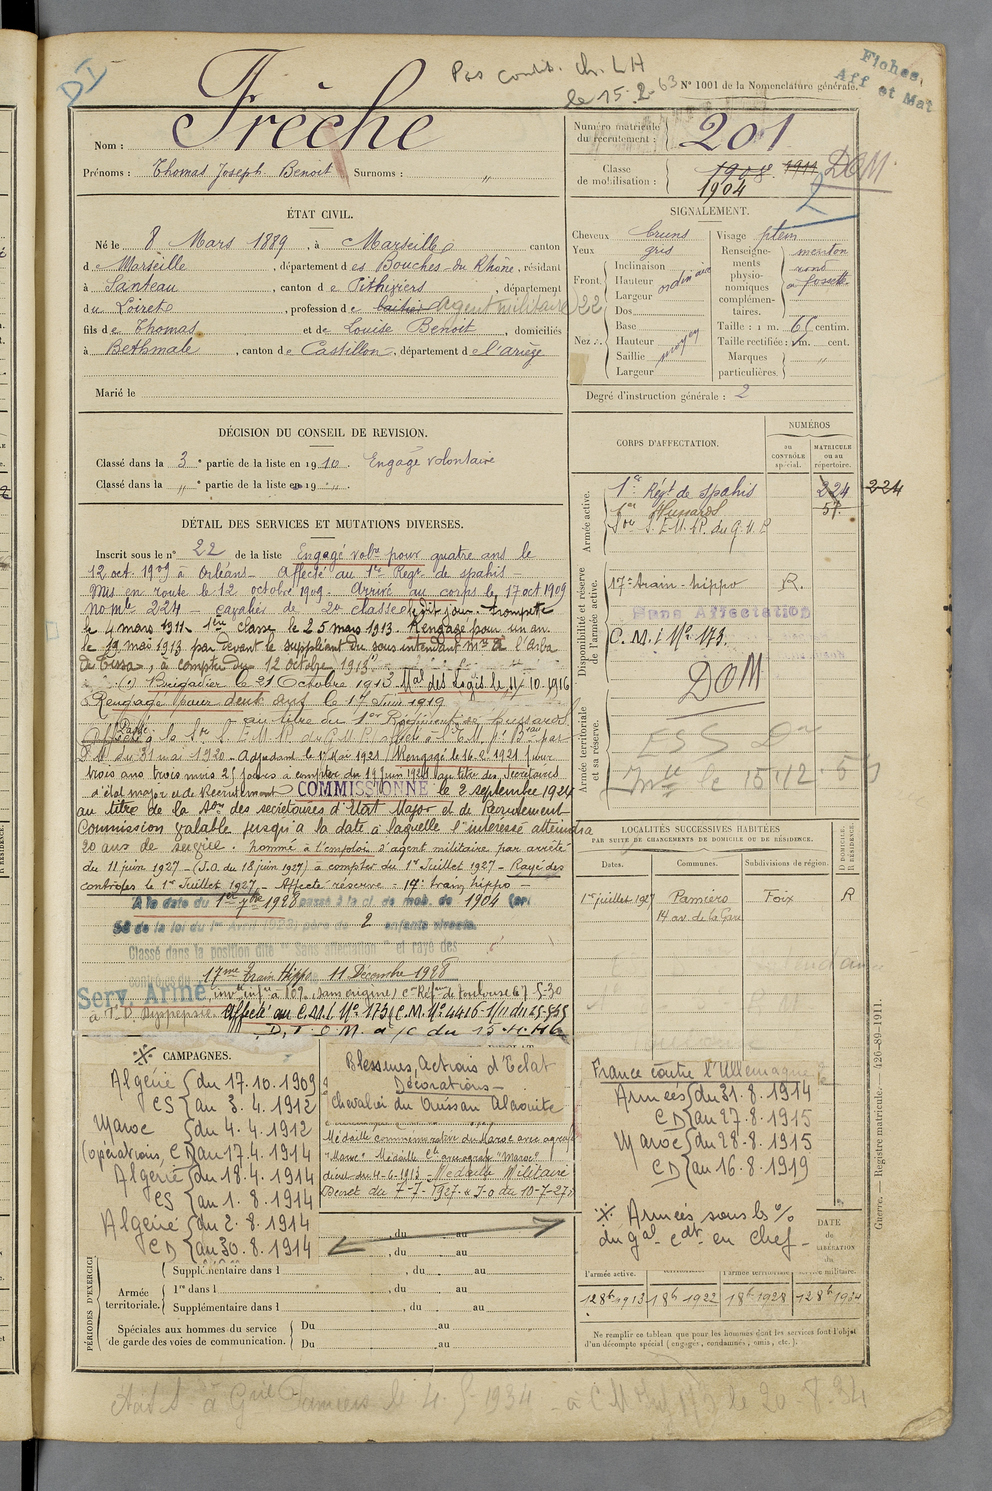 DI
Pas condit. ch. LH
le 15.2.63
N° 1001 de la Nomenclature générale.
Fiches,
Aff et Mat
Nom : Frèche
Prénoms : Thomas Joseph Benoit Surnoms : "
Numéro matricule du recrutement : 201
Classe de mobilisation : 1908 1911 DOM
1904
ÉTAT CIVIL.
Né le 8 Mars 1889, à Marseille canton
de Marseille, département des Bouches-du-Rhône, résidant
à Santeau, canton de Pithiviers, département
du Loiret, profession de laitier Agent militaire 22
fils de Thomas et de Louise Benoit, domiciliés
à Bethmale, canton de Castillon, département de l'ariège
Marié le
SIGNALEMENT.
Cheveux bruns
Yeux gris
Front. Inclinaison
Hauteur ordinaire
Largeur
Nez : Dos
Base
Hauteur moyen
Saillie
Largeur
Visage plein
Renseignements physionomiques complémentaires. menton rond à fossette
Taille : 1 m. 65 centim.
Taille rectifiée : 1 m. cent.
Marques particulières. "
Degré d'instruction générale : 2
DÉCISION DU CONSEIL DE REVISION.
Classé dans la 3e partie de la liste en 1910. Engagé volontaire
Classé dans la " e partie de la liste en 19 ".
CORPS D'AFFECTATION.
NUMÉROS
au CONTRÔLE spécial.
MATRICULE ou au répertoire.
Armée active.
1er Régt de Spahis 224 224
1er Hussards 57
S.E.M.R. du G.M.P.
Disponibilité et réserve de l'armée active.
17e train-hippo R.
Sans Affectation
C.M.I. No 173.
DOM
Armée territoriale et sa réserve.
le 15-12-5
DÉTAIL DES SERVICES ET MUTATIONS DIVERSES.
Inscrit sous le n° 22 de la liste Engagé volre pour quatre ans le
12 oct. 1909 à Orléans - Affecté au 1er Régt de spahis -
Mis en route le 12 octobre 1909. Arrivé au corps le 17 oct 1909
no mle 224 - cavalier de 2e classe le dit jour. trompette
le 4 mars 1911. 1ère classe le 25 mars 1913. Rengagé pour un an
le 19 mars 1913 par devant le suppléant du sous intendant mre de l'Arba
de Tissa, à compter du 12 octobre 1913
Brigadier le 21 Octobre 1913 Mal des Logis le 11-10-1916
Rengagé pour deux ans le 17 Juin 1919
au titre du 1er Régiment de hussards
Passé
Affecté à la
D.M. du 31 mai 1920 - Adjudant le 1er Mai 1921 Rengagé le 16.2.1921 pour
trois ans trois mois 25 jours à compter du 19 juin 1921 au titre des Secrétaires
d'état major et de Recrutement COMMISSIONNÉ le 2 septembre 1924
au titre de la Son des secrétaires d'Etat Major et de Recrutement
Commission valable jusqu'à la date à laquelle l'intéressé atteindra
20 ans de service. nommé à l'emploi d'agent militaire par arrêté
du 11 juin 1927 - (J.O. du 18 juin 1927) à compter du 1er Juillet 1927 - Rayé des
contrôles le 1er Juillet 1927 - Affecté réserve - 17e train hippo -
A la date du 1er 1928 passé à la cl. de mob. de 1904 (art
58 de la loi du 1er Avril 1923) père de 2 enfants vivants.
Classé dans la position dite "Sans affectation" et rayé des
contrôles du 17me Train Hippo 11 Décembre 1928
Serv. Armé
Affecté au C.M.I. No 173
D.T.O.M.
LOCALITÉS SUCCESSIVES HABITÉES
PAR SUITE DE CHANGEMENTS DE DOMICILE OU DE RÉSIDENCE.
Dates. Communes. Subdivisions de région. D DOMICILE, R RÉSIDENCE.
1er juillet 1927 Pamiers Foix R
14 av. de la Gare
※ CAMPAGNES.
Algérie du 17.10.1909
CS au 3.4.1912
Maroc du 4.4.1912
(opérations, CD) au 17.4.1914
Algérie du 18.4.1914
CS au 1.8.1914
Algérie du 2.8.1914
CD au 30.8.1914
Blessures, Actions d'Eclat
Décorations -
Chevalier du Ouissam Alaouite
Médaille commémorative du Maroc avec agrafe
"Maroc" Médaille Cle avec agrafe "Maroc"
décret du 4-6-1913 Médaille Militaire
Décret du 7-7-1927. J.O. du 10-7-27
France contre l'Allemagne
Armées du 31.8.1914
CD au 27.8.1915
Maroc du 28.8.1915
CD au 16.8.1919
※ Armées sous les o/
du gal cdt en chef -
, du au
, du au
PÉRIODES D'EXERCICE
Supplémentaire dans l , du au
Armée territoriale.
1re dans l , du au
Supplémentaire dans l , du au
Spéciales aux hommes du service de garde des voies de communication.
Du au
Du au
DATE de LIBÉRATION du service militaire.
l'armée active.
l'armée territoriale
12 8bre 1913 18 1922 18 1928 12 8bre 1934
Ne remplir ce tableau que pour les hommes dont les services font l'objet
d'un décompte spécial (engagés, condamnés, omis, etc.).
Guerre. — Registre matricule. — 426-89-1911.
Pamiers le 4-5-1934 - à C M le 20-8-34